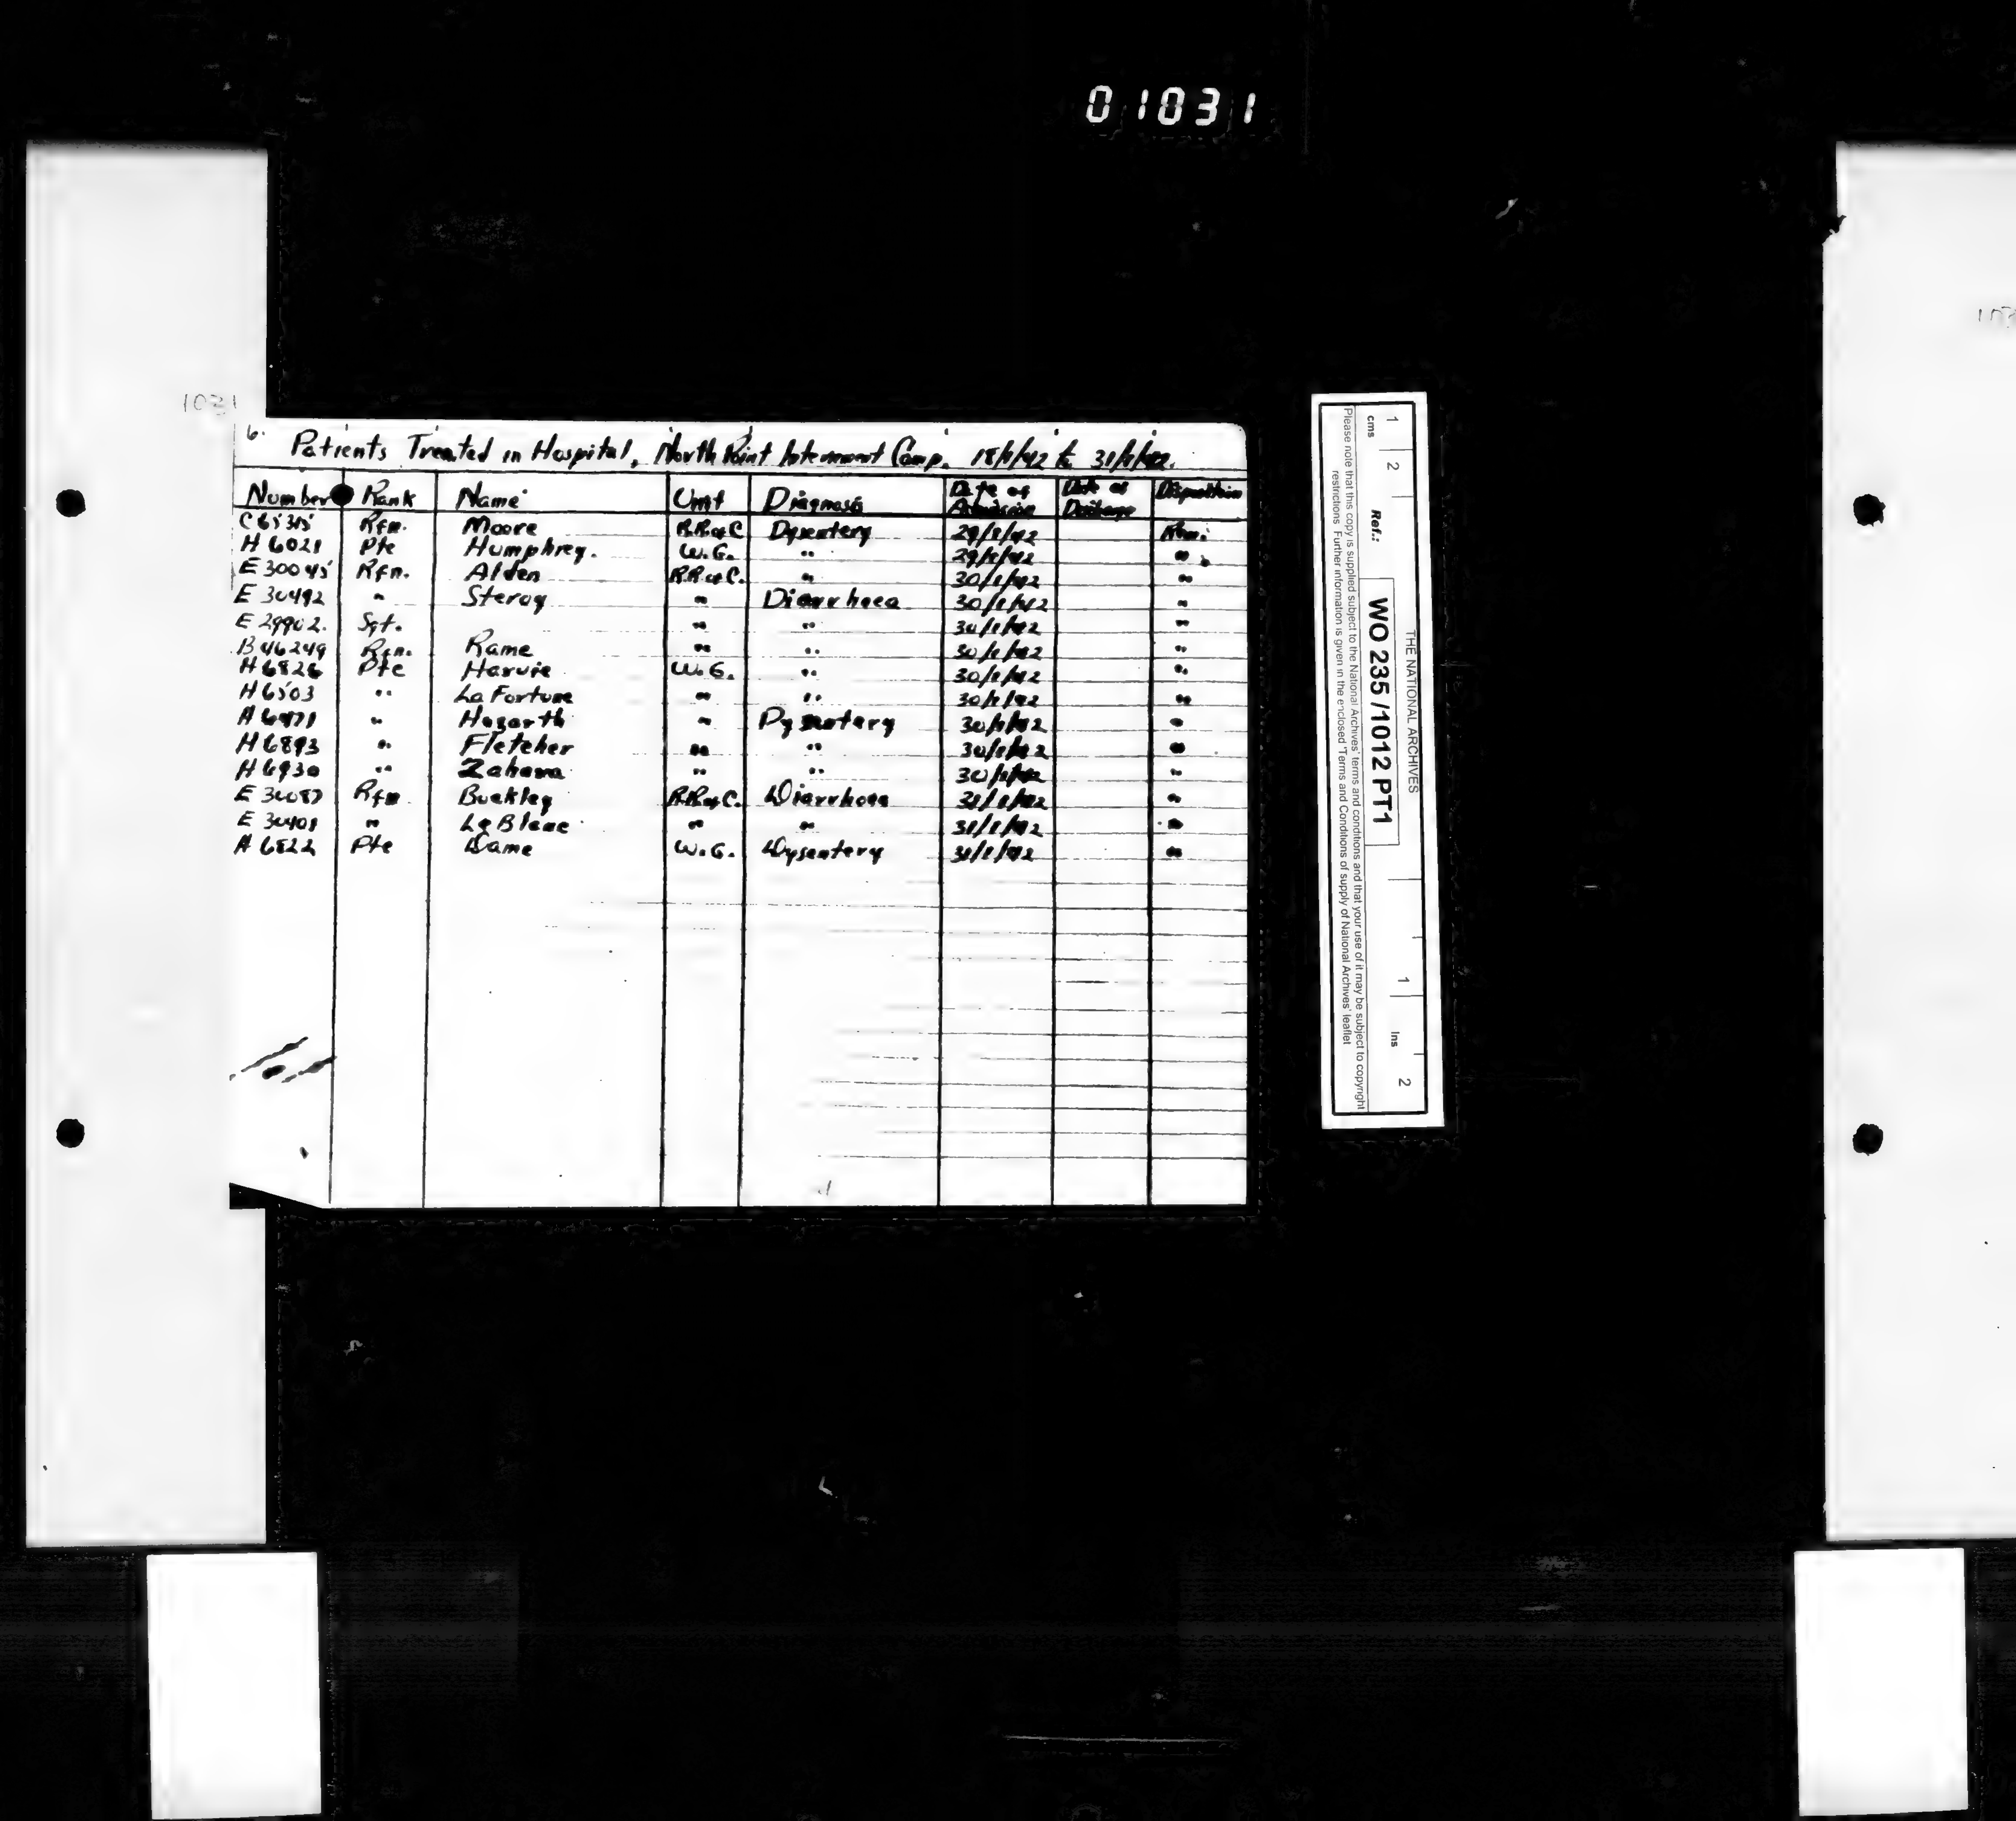 01031
1031
6.
Patients Treated in Hospital, North Point Internment Camp. 18/1/42 to 31/1/42.
Number Rank Name Unit Diagnosis Date of Admission Date of Discharge Disposition
C 65315 Rfn. Moore R.R. of C Dysentery 29/1/42
H 6021 Pte Humphrey. W.G. " 29/1/42 "
E 30045 Rfn. Alden R.R. of C. " 30/1/42 "
E 30492 " Steroy " Diarrhoea 30/1/42 "
E 29902. Sgt. " " 30/1/42 "
B 46249 Rfn. Rame " " 30/1/42 "
H 6826 Pte Harvie W.G. " 30/1/42 "
H 6503 " La Fortune " " 30/1/42 "
H 6471 " Hogarth " Dysentery 30/1/42 "
H 6893 " Fletcher " " 30/1/42 "
H 6930 " Zahara " " 30/1/42 "
E 30087 Rfn Buckley R.R. of C. Diarrhoea 31/1/42 "
E 30401 " Le Blanc " " 31/1/42 "
H 6822 Pte Dame W.G. Dysentery 31/1/42 "
1 2 1 2
cms Ins
THE NATIONAL ARCHIVES
Ref.: WO 235 /1012 PT1
Please note that this copy is supplied subject to the National Archives' terms and conditions and that your use of it may be subject to copyright
restrictions Further information is given in the enclosed 'Terms and Conditions of supply of National Archives' leaflet